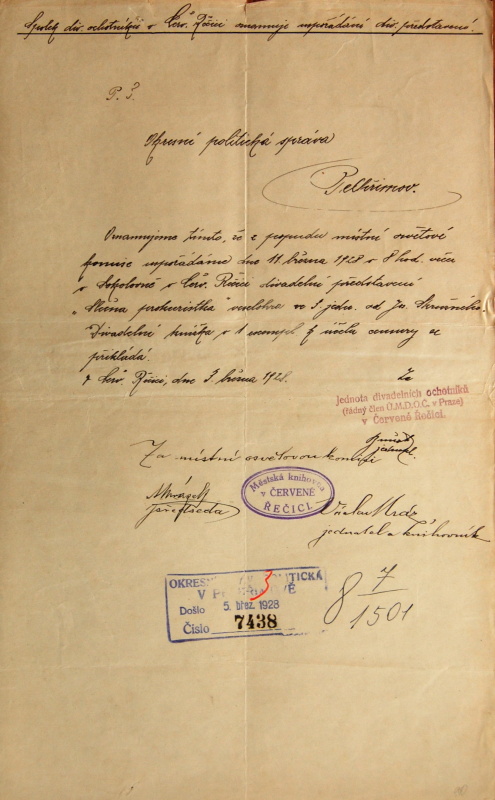 Spolek div. ochotníků v Červ. Řečici oznamuje uspořádání div. představení.
P. T.
Okresní politická správa
Pelhřimov.
Oznamujeme tímto, že z popudu místní osvětové
komise uspořádáme dne 11 března 1928 v 8 hod. večer
v Sokolovně v Červ. Řečici divadelní představení
" prokuristka" veselohra ve 3 jedn. od Jos. Skružného.
Divadelní knížka v 1 exempl. k účelu cenzury se
přikládá.
V Červ. Řečici, dne 3. března 1928.
Za
jednota divadelních ochotníků
(řádný člen Ú.M.D.O.Č. v Praze)
v Červené Řečici.
jednatel.
Za místní osvětovou komisi
Městská knihovna
v ČERVENÉ
ŘEČICI.
předseda
Václav Mrdz
jednatel a knihovník
OKRESNÍ POLITICKÁ
V PELHŘIMOVĚ
3
Došlo 5. břez. 1928
Číslo 7438
8 7
1501